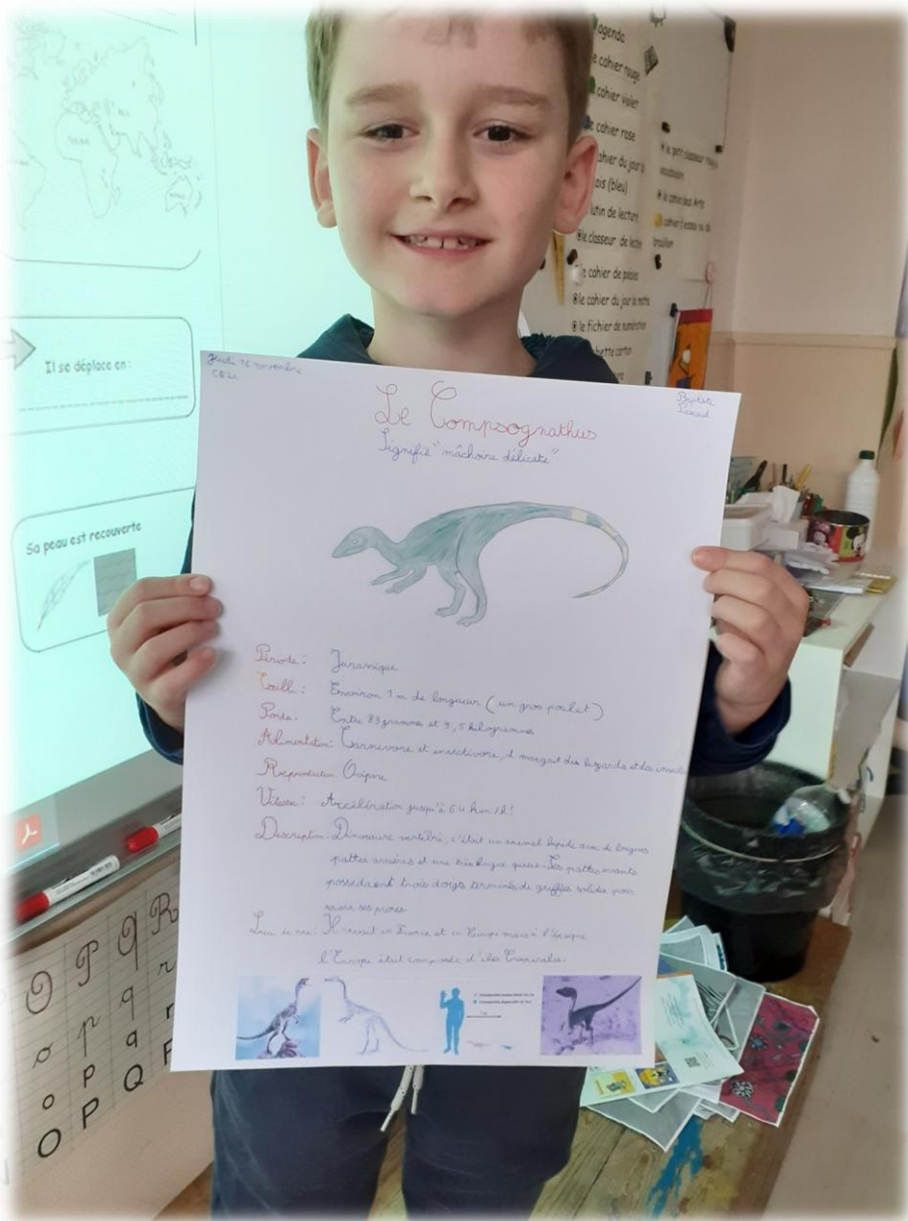 Il se déplace en :
Sa peau est recouverte
agenda
cahier rouge
cahier violet
cahier rose
cahier du jour
(bleu)
lutin de lecture
le classeur de
cahier de poésies
le cahier du jour
le fichier de numération
le petit classeur
vocabulaire
le cahier des Arts
cahier d'essais ou de
brouillon
Jeudi 16 novembre
Pascal
Le Compsognathus
Signifie "mâchoire délicate"
Période : Jurassique
Environ 1 m de longueur (un gros poulet)
Poids : Entre 89 grammes et 3,5 kilogrammes
Alimentation : Carnivore et insectivore, il mangeait des lézards et des
Reproduction : Ovipare
Vitesse : Accélération jusqu'à 64 km/h !
Description : Dinosaure vertébré, c'était un animal bipède avec de longues
pattes arrières et une très longue queue. Ses pattes avants
possédaient trois doigts terminés de griffes solides pour
saisir ses proies
Lieu de vie : Il vivait en France et en Europe mais à l'époque
l'Europe était composée d'îles tropicales.
O P Q R
o p q r
o p q r
O P Q